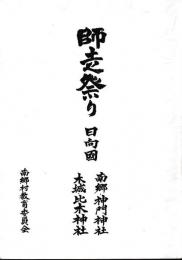 師走祭り
日向國
南郷神門神社
木城比木神社
南郷村教育委員会